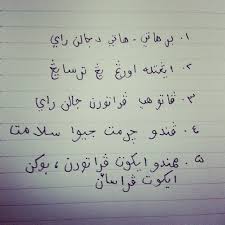 ١. برهاتي - هاتي دجالن راي
٢. ايڠتله اورڠ يڠ ترسايڠ
٣. ڤاتوهي ڤراتورن جالن راي
٤. ڤندو چرمت جيوا سلامت
٥. ممندو ايکوت ڤراتورن ، بوکن
ايکوت ڤراسان